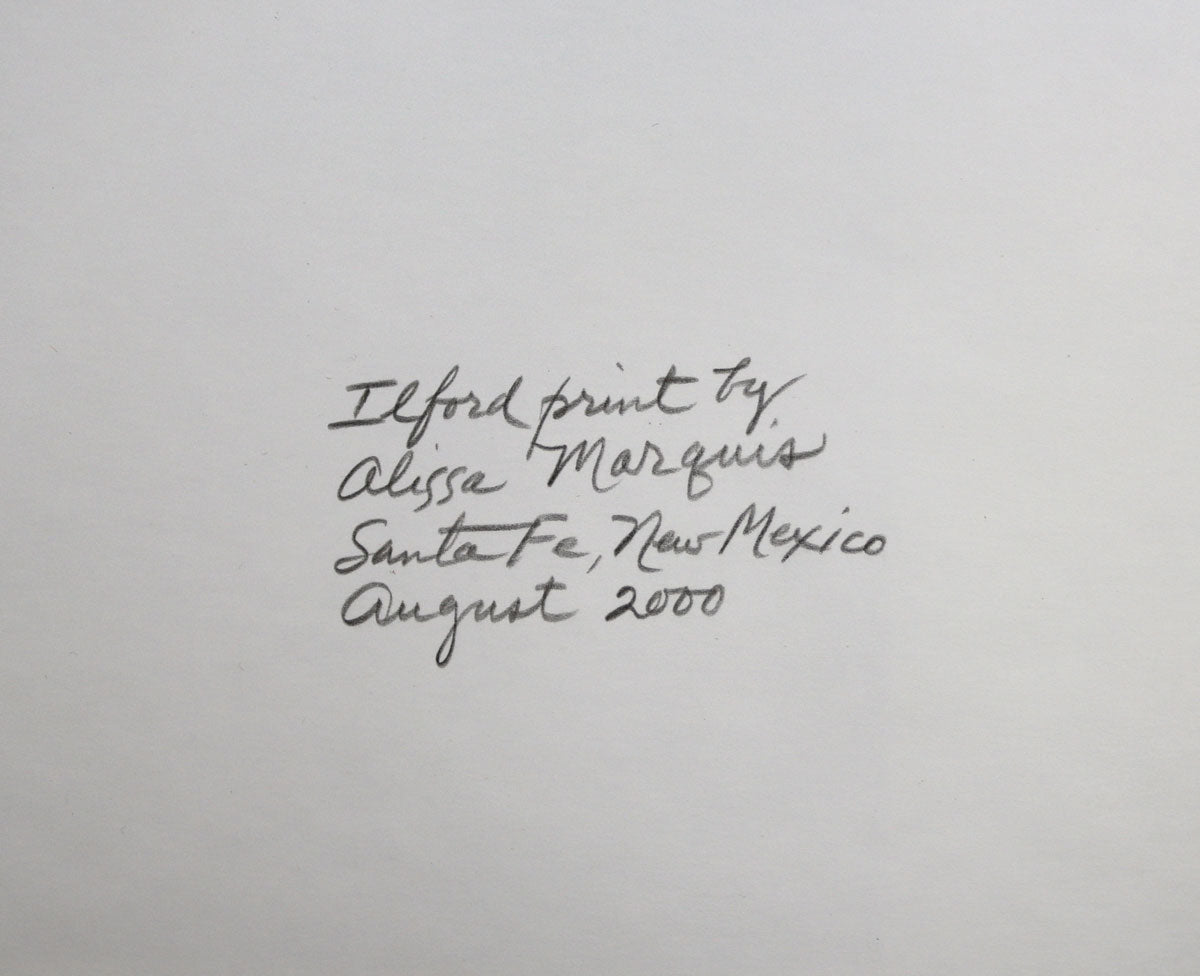 Ilford print by
Alissa Marquis
Santa Fe, New Mexico
August 2000